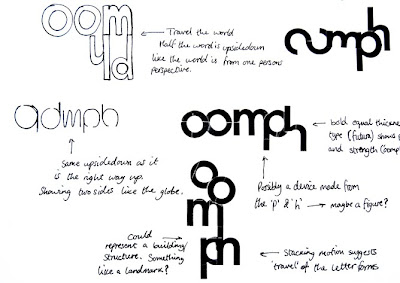 oom
Travel the world
Half the word is upsidedown
like the world is from one persons
perspective.
oomph
oomph
bold equal thickne
type (futura) shows p
and strength (oomp
Same upsidedown as it
is the right way up.
Showing two sides like the globe.
Possibly a device made from
the 'p' & 'h' → maybe a figure?
oo
m
ph
Could
represent a building/
structure. Something
like a landmark?
Stacking motion suggests
'travel' of the letterforms